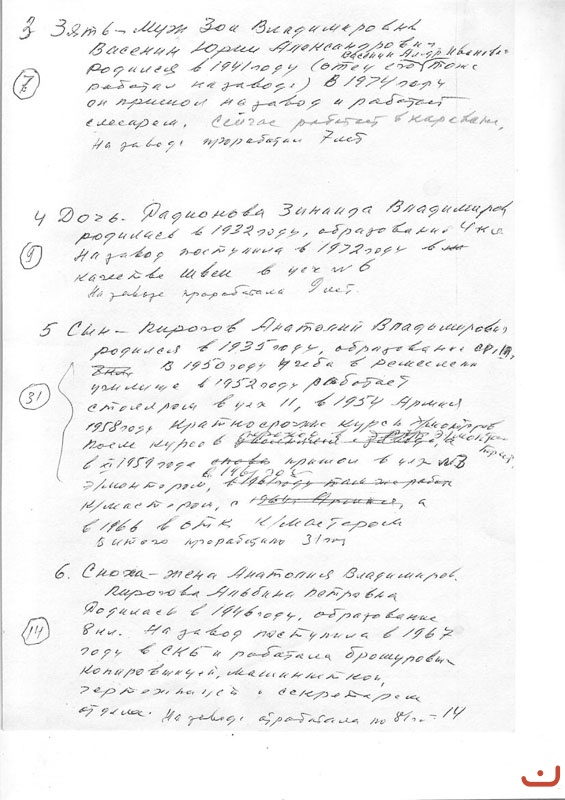 3 Зять – муж Зои Владимировны
Васенин Юрий Александрович
Васенин Ал-др Иванович
родился в 1941 году (отец его тоже
7
работал на заводе) В 1974 году
он пришол на завод и работает
слесарем. сейчас работает в
на заводе проработал 7 лет
4 Дочь. Радионова Зинаида Владимиров
родилась в 1932 году, образование 4 кл
9
На завод поступила в 1972 году в
качестве швеи в цех № 6
На заводе проработала 9 лет.
5 Сын – Пирогов Анатолий Владимирович
родился в 1935 году, образование
В 1950 году учеба в ремеслен
училище в 1952 году работает
31
столяром в цех 11, в 1954 Армия
1958 году краткосрочные курсы
после курсов
в 1959 года пришол в цех № 3
Э/монтером, в 1961
К/мастером, с а
в 1966 в ОТК К/мастером
В итого 31 год
6. Сноха – жена Анатолия Владимиров.
Пирогова Альбина Петровна
Родилась в 1946 году, образование
14
8 кл. На завод поступила в 1967
году в СКБ и работала брошуровщ
копировщицей, машинисткой,
чертежницей и секретарем
отдела. На заводе отработала по 81 г. – 14